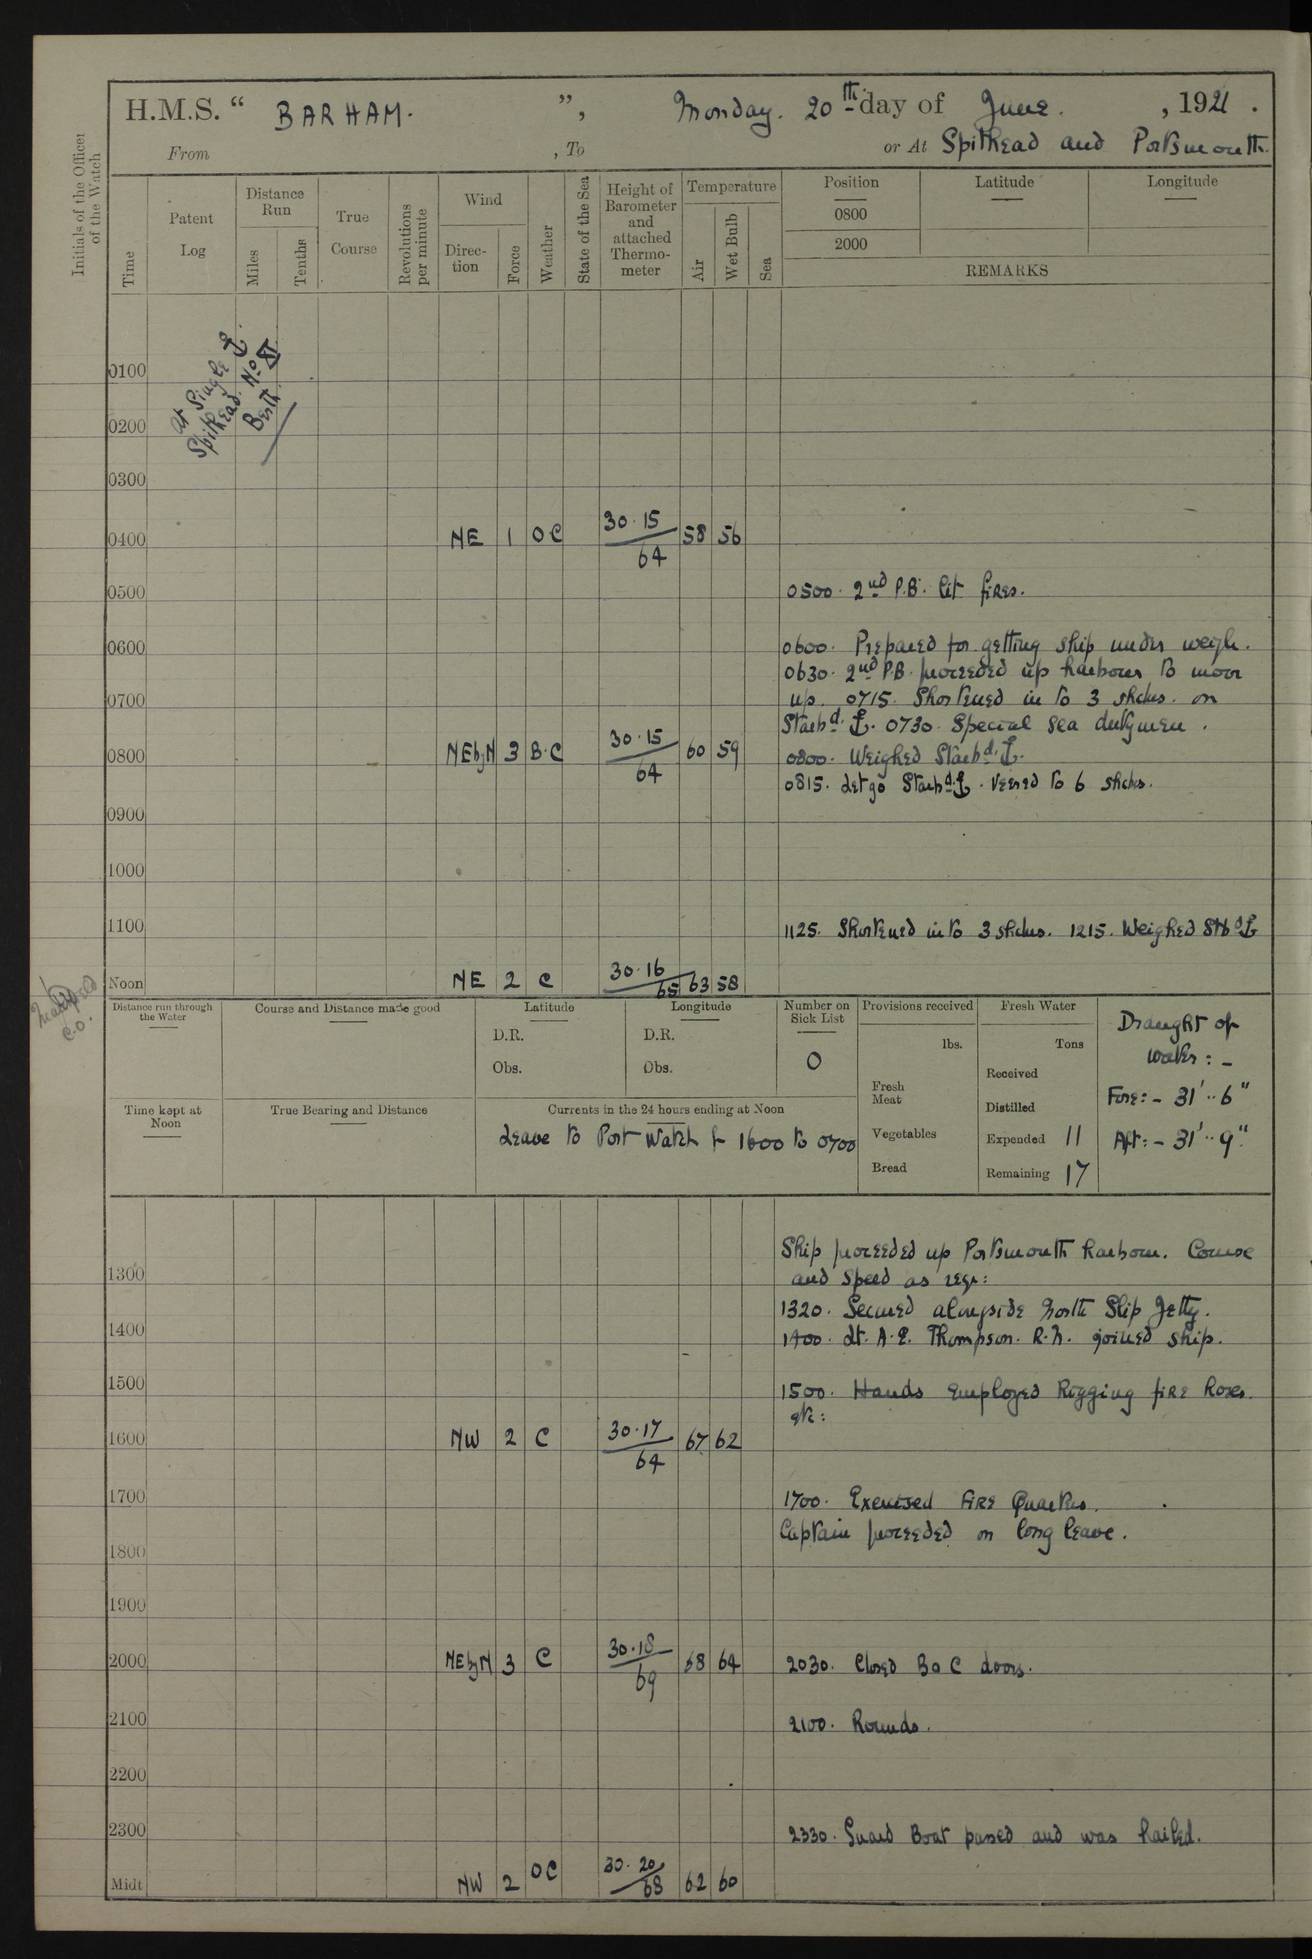 H.M.S. “ BARHAM. ”, Monday. 20th day of June. , 1921 .
From , To or At Spithead and Portsmouth.
Initials of the Officer of the Watch
Time
Patent Log
Distance Run
Miles
Tenths
True Course
Revolutions per minute
Wind
Direc-tion
Force
Weather
State of the Sea
Height of Barometer and attached Thermo-meter
Temperature
Air
Wet Bulb
Sea
Position Latitude Longitude
0800
2000
REMARKS
At Single ⚓.
Spithead. No XI
Berth
0100
0200
0300
0400 NE 1 OC 30.15 / 64 58 56
0500 0500. 2nd P.B. lit fires.
0600 0600. Prepared for getting ship under weigh.
0630. 2nd P.B. proceeded up harbour to moor
0700 up. 0715. Shortened in to 3 shcles. on
Starbd. ⚓. 0730. Special Sea dutymen.
0800 NEbyN 3 B.C 30.15 / 64 60 59 0800. Weighed Starbd. ⚓.
0815. Let go Starbd ⚓. Veered to 6 shcles.
0900
1000
1100 1125. Shortened in to 3 shcles. 1215. Weighed Stbd ⚓
Noon NE 2 C 30.16 / 65 63 58
Distance run through the Water
Course and Distance made good
Latitude
D.R.
Obs.
Longitude
D.R.
Obs.
Number on Sick List
0
Provisions received
lbs.
Fresh Meat
Vegetables
Bread
Fresh Water
Tons
Received
Distilled
Expended 11
Remaining 17
Draught of
water : -
Fore: - 31'..6"
Aft: - 31'..9".
Time kept at Noon
True Bearing and Distance
Currents in the 24 hours ending at Noon
Leave to Port Watch fr 1600 to 0700
Ship proceeded up Portsmouth harbour. Course
1300 and speed as reqr:
1320. Secured alongside North Slip Jetty.
1400 1400. Lt. A.E. Thompson. R.N. joined ship.
1500 1500. Hands employed Rigging fire hoses.
etc:
1600 NW 2 C 30.17 / 64 67 62
1700 1700. Exercised Fire Quarters.
Captain proceeded on long leave.
1800
1900
2000 NEbyN 3 C 30.18 / 69 68 64 2030. Closed B & C doors.
2100 2100. Rounds.
2200
2300 2330. Guard Boat passed and was hailed.
Midt NW 2 OC 30.20 / 68 62 60